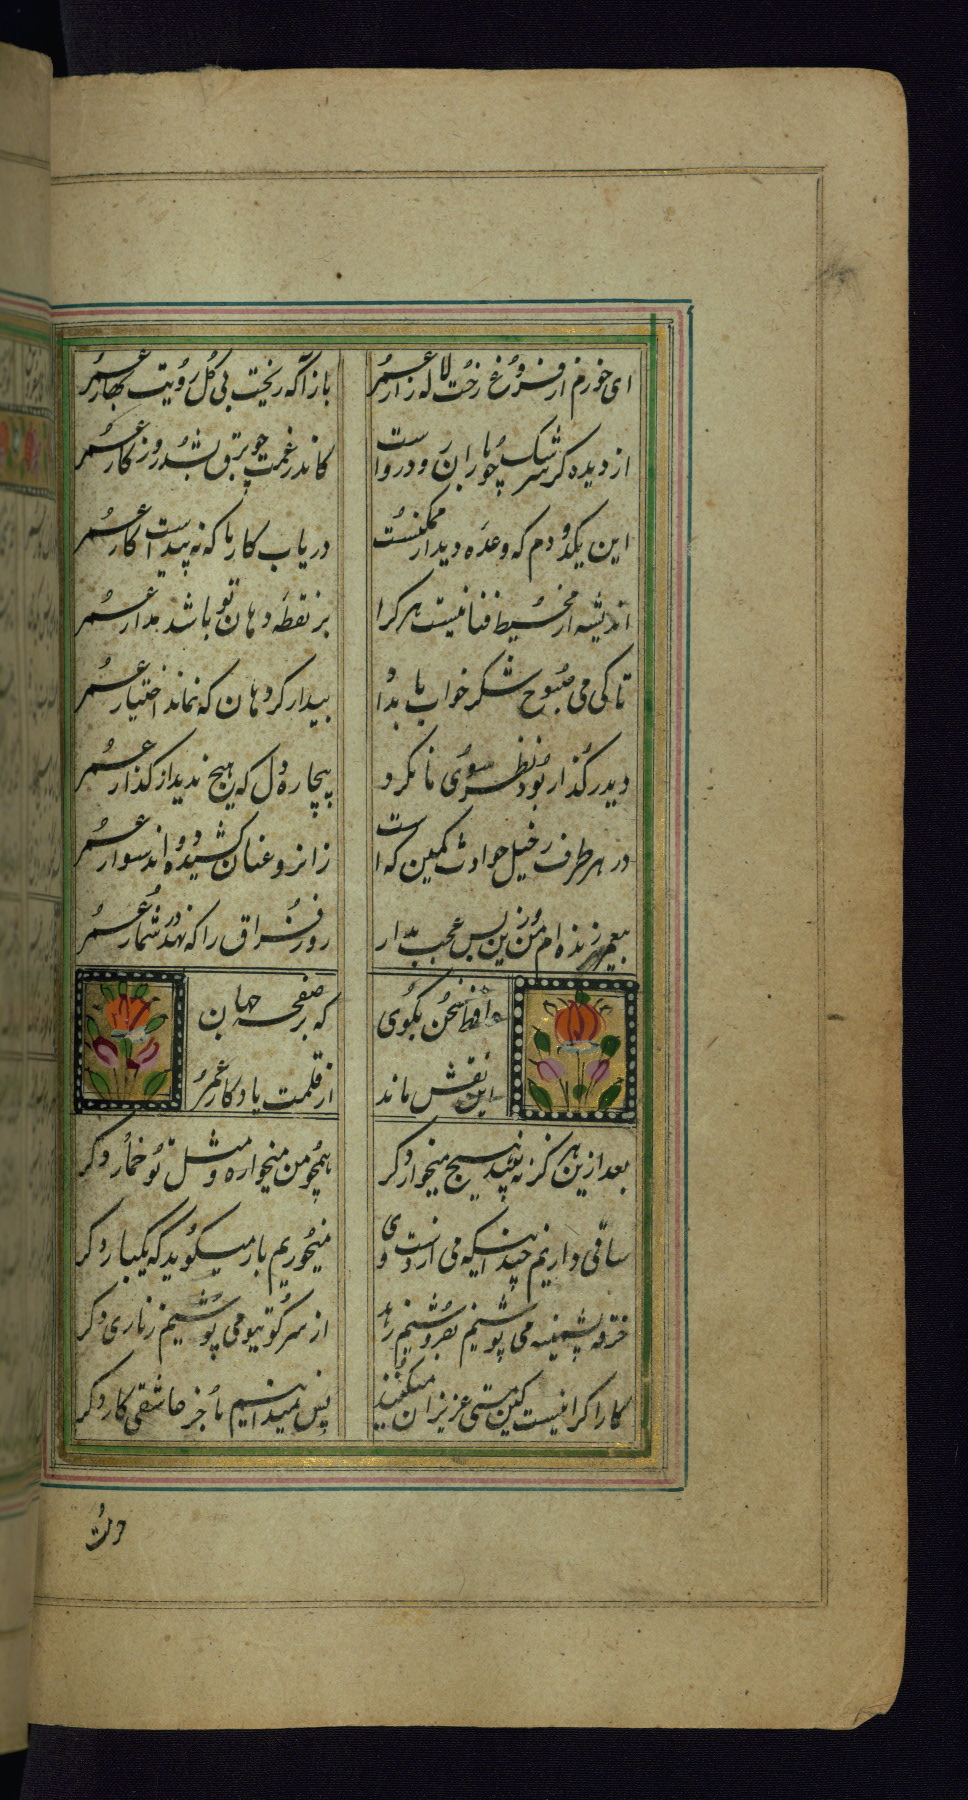 ای خورم از فروغ رخت لاله زار عمر
باز آ که ریخت بی گل رویت بهار عمر
از دیده گر سرشک چو باران رود رواست
کاندر غمت چو برق بشد روزکار عمر
این یکدو دم که وعده دیدار ممکنست
دریاب کار ما که نه پیداست کار عمر
اندیشه از محیط فنا نیست هر کرا
بر نقطه دهان تو باشد مدار عمر
تا کی می صبوح شکر خواب بامداد
بیدار کرد هان که نماند اختیار عمر
دی در گذار بود نظر سوی ما نکرد
بیچاره دل که هیچ ندید از گذار عمر
در هر طرف ز خیل حوادث کمین کهاست
زانرو عنان کشیده دواند سوار عمر
بیعمر زنده ام من و زین بس عجب مدار
روز فراق را که نهد در شمار عمر
حافظ سخن بکوی
که بر صفحه جهان
این نقش ماند
از قلمت یادکار عمر
بعد ازین هرکز نه بیند هیچ میخوار دکر
همچو من میخواره و مثل تو خمار دکر
ساقی داریم چندانیکه می از دست وی
میخوریم باز میکوید که یکبار دکر
خرقه پشمینه می پوشیم بفروشیم زهد
از سر کو تیو می پوشیم زناری دکر
کار اکرا نیست کین مستی عزیزان میکنند
پس نمیدانیم ما جز عاشقی کار دکر